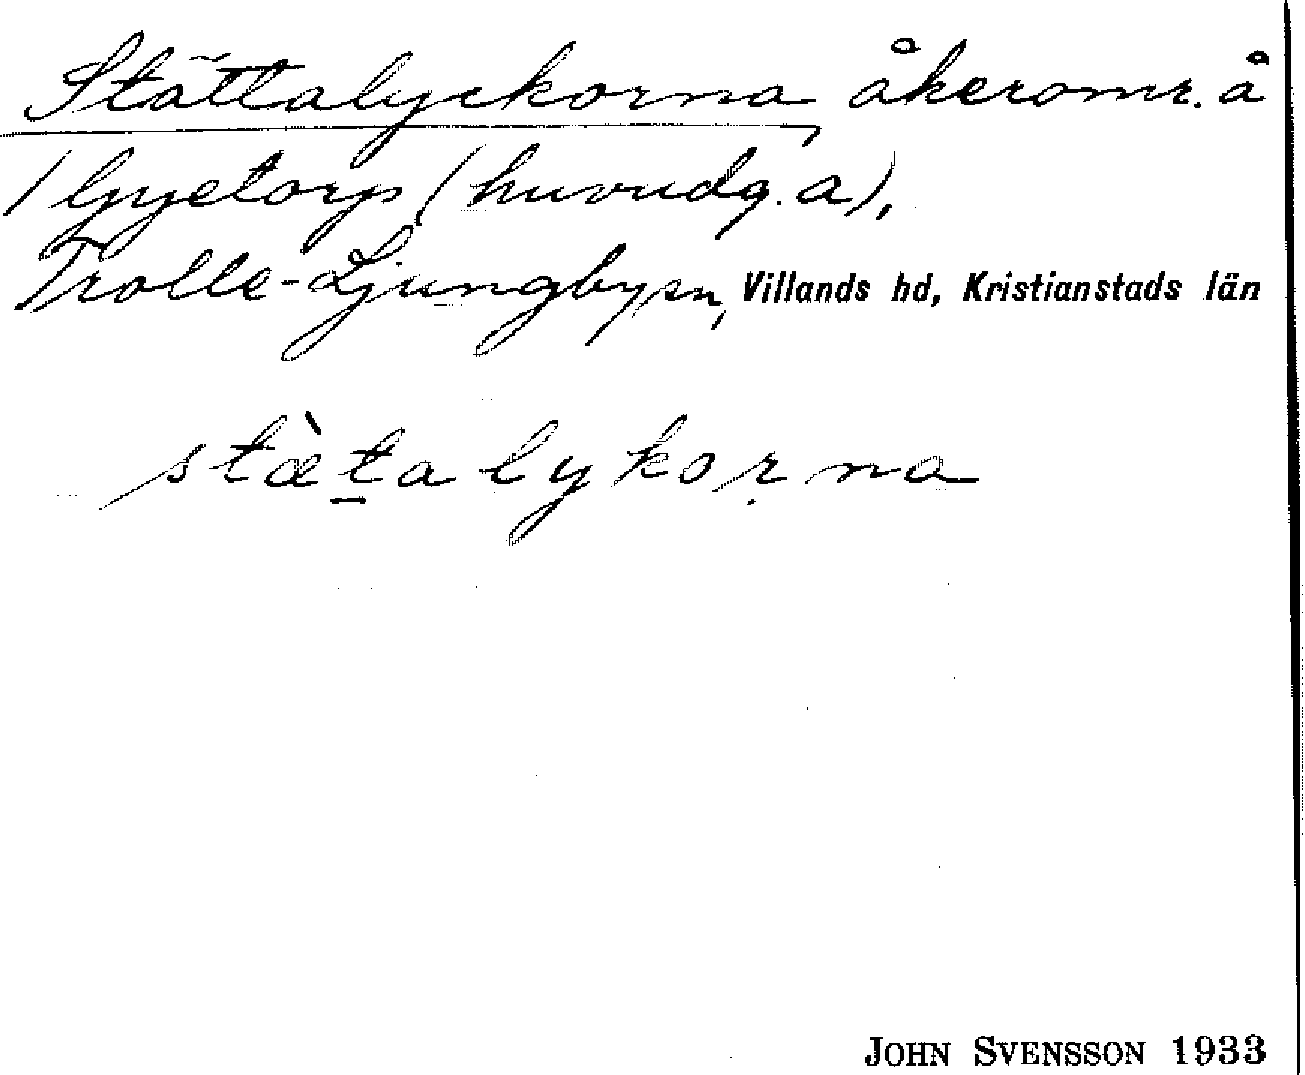 Stättalyckorna, åkeromr. å
1 Gyetorp (huvudg. a),
Trolle-Ljungby sn, Villands hd, Kristianstads län
stæ̀t̲alykoṛna
JOHN SVENSSON 1933